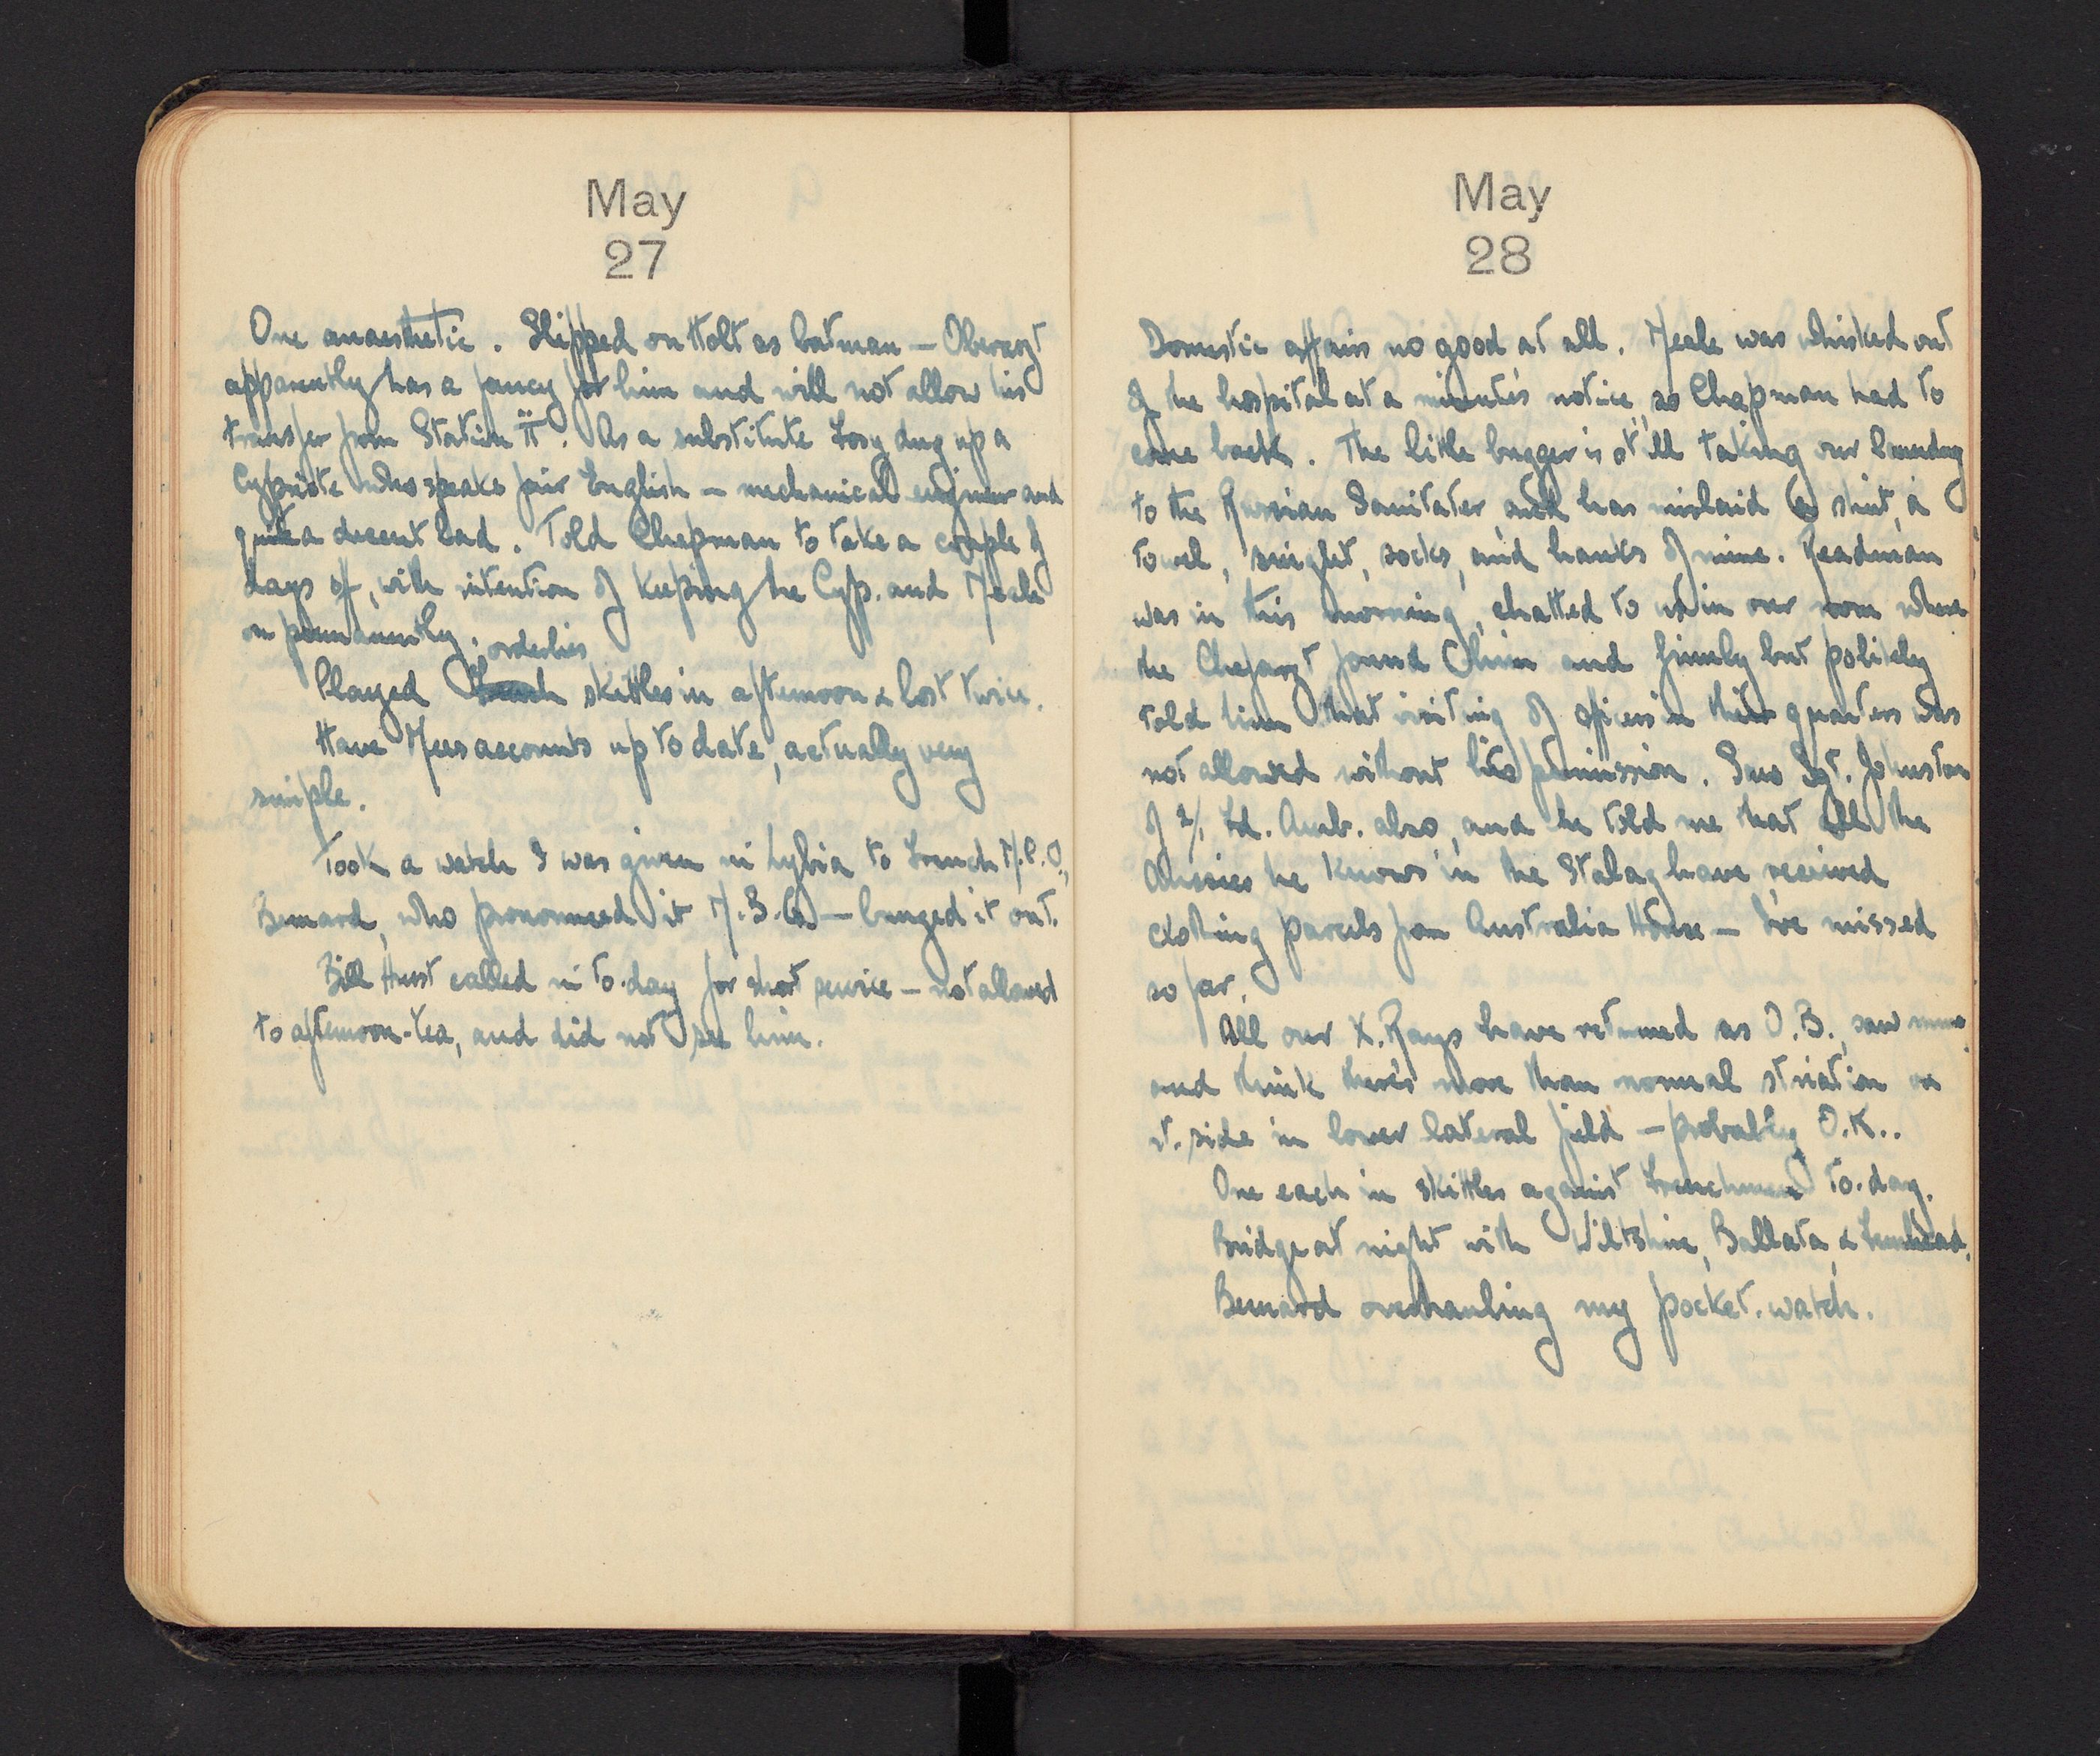 May
27
One anaesthetic. Slipped on Holt as batman – Oberarzt
apparently has a fancy for him and will not allow his
transfer from Station II. As a substitute Losy dug up a
Cypriote who speaks fair English – mechanical engineer and
quite a decent lad. Told Chapman to take a couple of
days off, with intention of keeping the Cyp. and Meale
on permanently.
orderlies
Played skittles in afternoon & lost twice.
Have Mess accounts up to date, actually very
simple.
Took a watch I was given in Lybia to French M.P.O.,
Bernard, who pronounced it N.B.G. – bunged it out.
Bill Hurst called in to-day for short service – not allowed
to afternoon-tea, and did not see him.
May
28
Domestic affairs no good at all. Meale was whisked out
of the hospital at a minute's notice, so Chapman had to
come back. The little bugger is still taking our laundry
to the Russian Sanitater, and has mislaid a shirt, a
towel, singlet, socks, and hanks of mine. Readman
was in this morning, chatted to us in our room where
the Chefarzt found him and firmly but politely
told him that visiting of officers in their quarters was
not allowed without his permission. Saw Sgt. Johnston
of 2/1 Fd. Amb. also, and he told me that all the
Aussies he knows in the Stalag have received
clothing parcels from Australia House – I've missed
so far.
All our X.Rays have returned as O.B., saw mine
and think there's more than normal striation on
rt. side in lower lateral field – probably O.K..
One each in skittles against Frenchmen to-day.
Bridge at night with Wiltshire, Ballata, &
Bernard overhauling my pocket-watch.